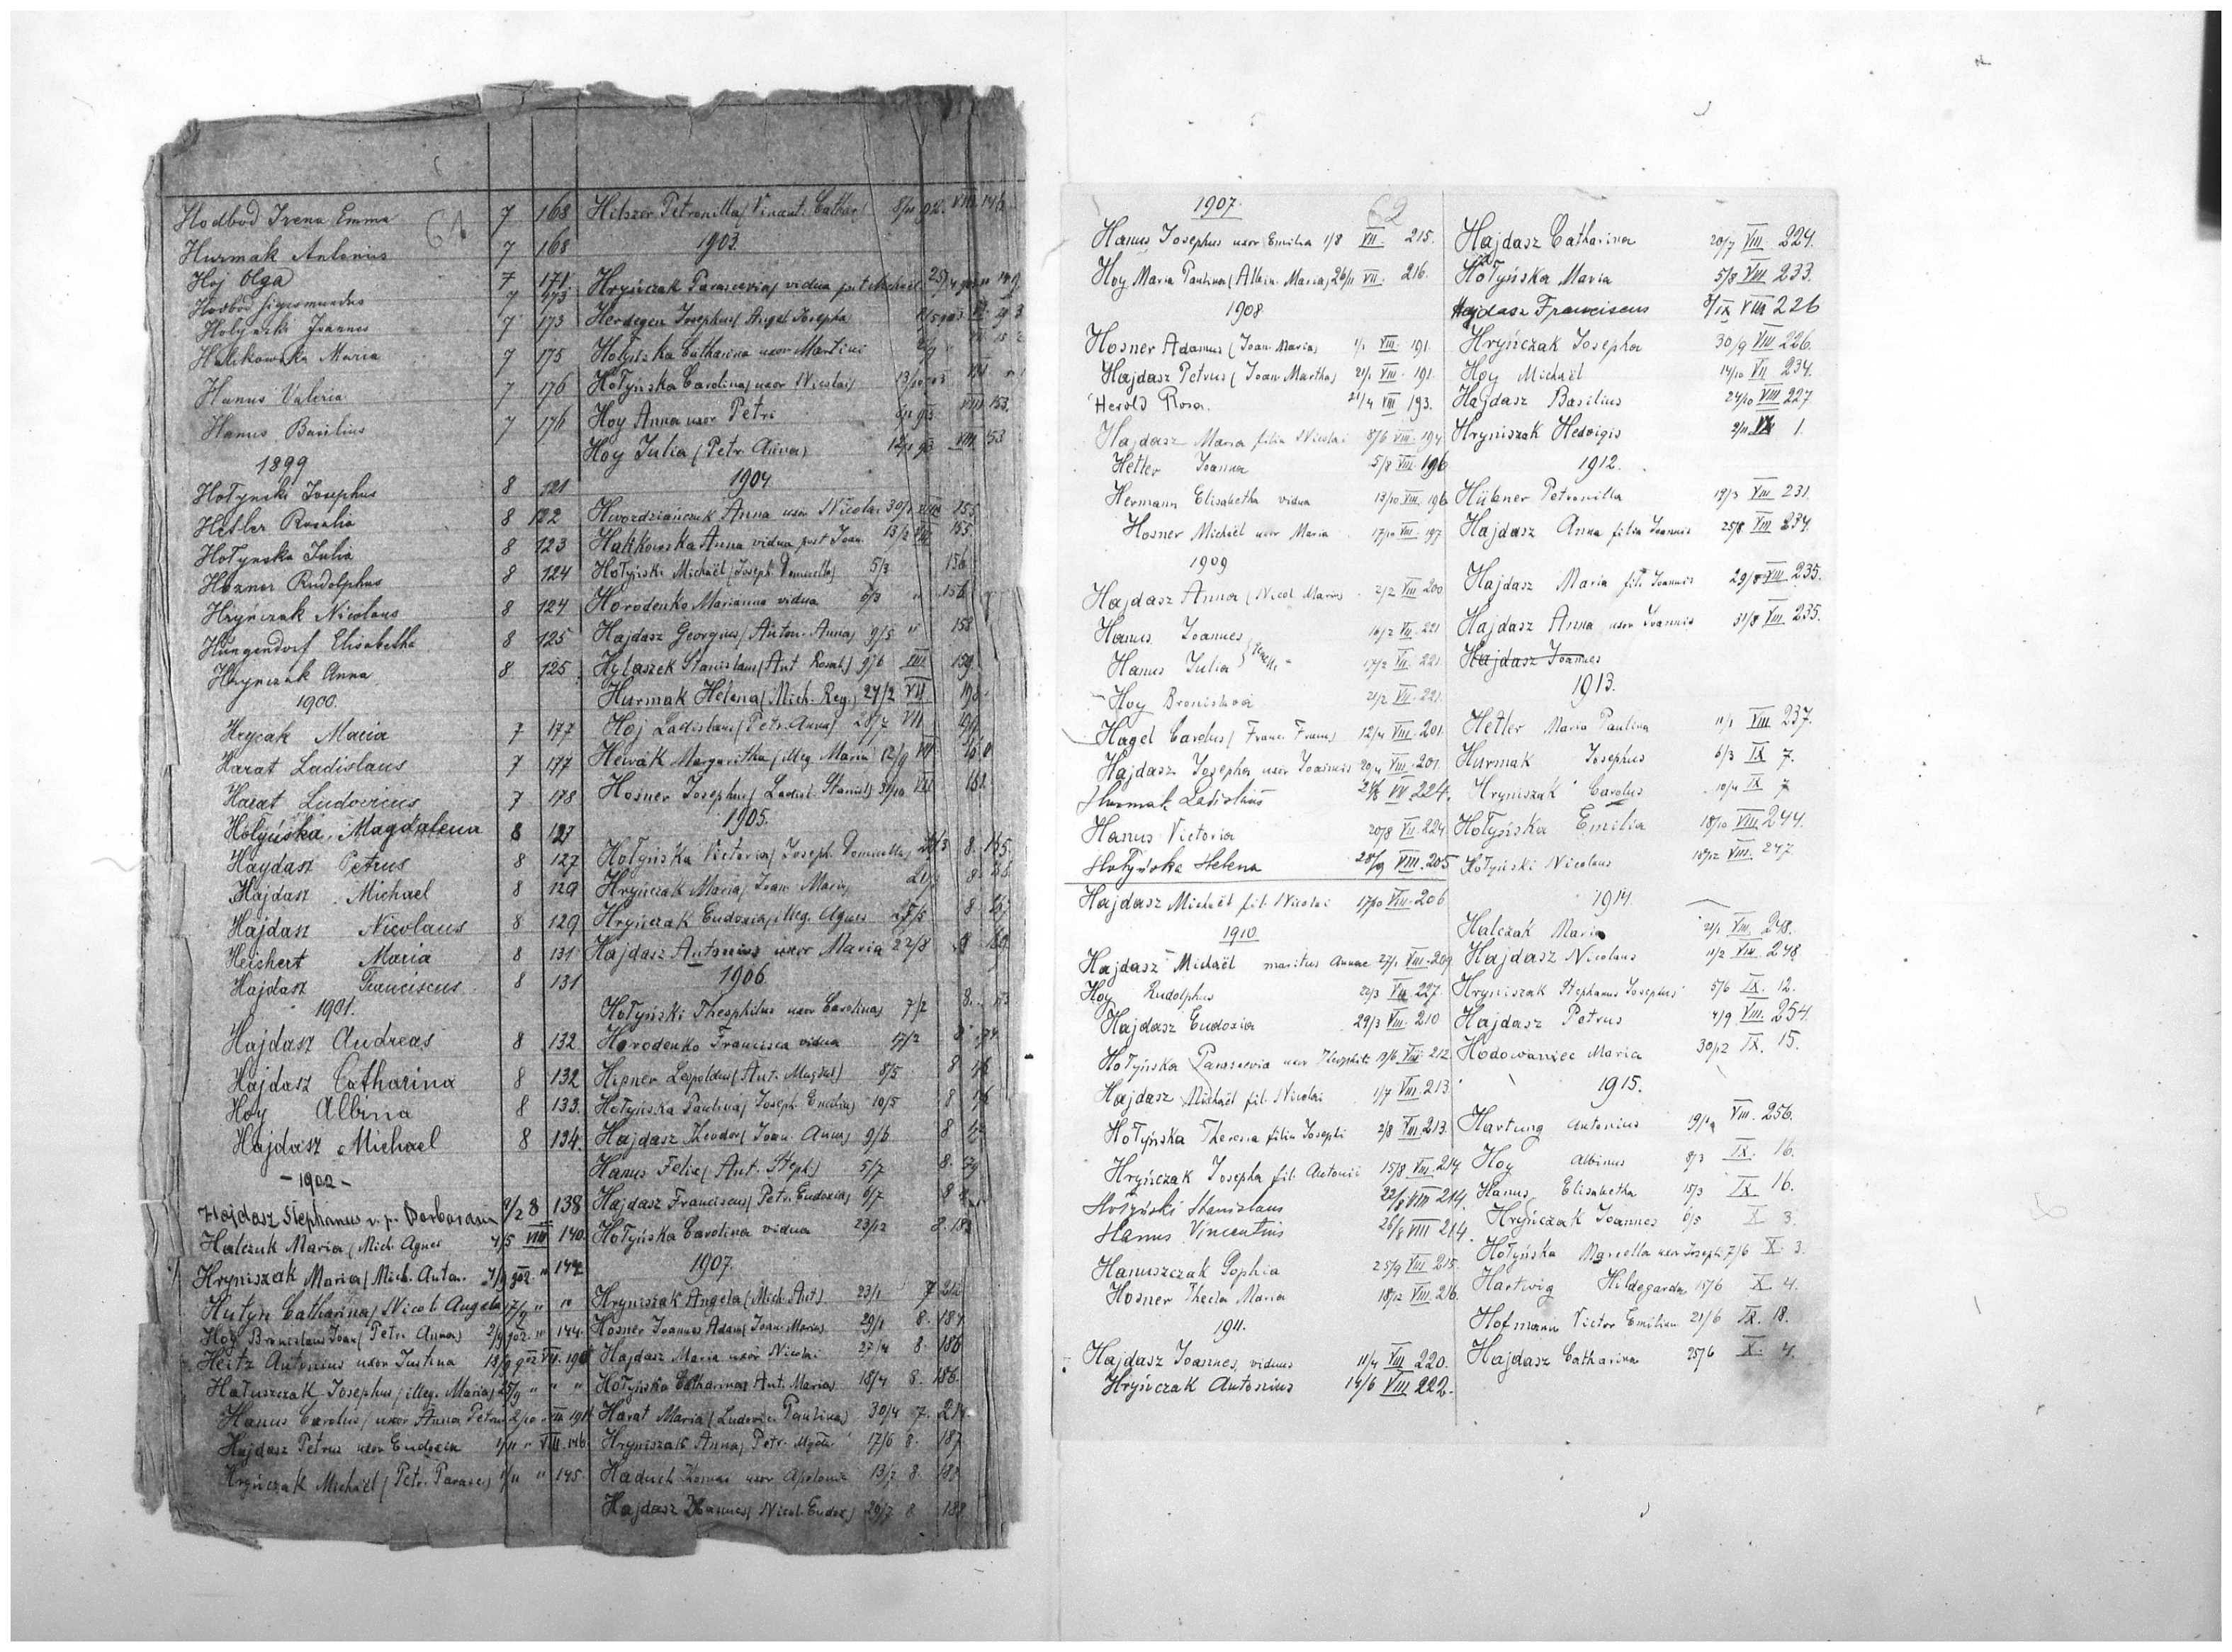 61
Hodbod Irena Emma 7 168
Hurmak Antonius 7 168
Hoj Olga 7 171
Hodbod Sigismundus 7 173
Holynski Joannes 7 173
Halikowska Maria 7 175
Hanus Valeria 7 176
Hanus Basilius 7 176
1899
Hołynski Josephus 8 121
Hetler Rosalia 8 122
Hołynska Julia 8 123
Hozner Rudolphus 8 124
Hryńczak Nicolaus 8 124
Hungendorf Elisabetha 8 125
Hryńczak Anna 8 125
1900.
Hrycak Maria 7 177
Harat Ladislaus 7 177
Harat Ludovicus 7 178
Hołyńska Magdalena 8 127
Haydasz Petrus 8 127
Hajdasz Michael 8 129
Hajdasz Nicolaus 8 129
Heichert Maria 8 131
Hajdasz Franciscus 8 131
1901.
Hajdasz Andreas 8 132
Hajdasz Catharina 8 132
Hoy Albina 8 133.
Hajdasz Michael 8 134.
- 1902 -
Hajdasz Stephanus v. p. Barbaram 9/2 8 138
Halczuk Maria (Mich. Agnes 4/5 VIII 140.
Hryniszak Maria (Mich. Anton. 902 " 142
Hutyn Catharina (Nicol. Angela 17/ " "
Hoj Bronislaus Joan (Petr. Anna) 2/9 902. " 144.
Heitz Antonius uxor Justina 13/9 902 VII. 190
Hałuszczak Josephus (illeg. Maria) 25/9 " " "
Hanus Carolus, uxor Anna Petrus 2/10 " VII 191
Hajdasz Petrus uxor Eudoxia 1/11 " VIII. 146
Hryńczak Michaël (Petr. Parasc.) 1/11 " 145.
Hilszer Petronilla (Vincent. Cathar) 8/11 902. VIII. 146
1903.
Hryńczak Parascevia, vidua post Michaël 25/4 903
Herdegen Josephus (Angel. Josepha
Hołyńska Catharina uxor Martini
Hołyńska Carolina, uxor Nicolai 13/10
Hoy Anna uxor Petri VIII 153.
Hoy Julia (Petr. Anna) 12/11 93 VIII. 153
1904.
Hwozdziańczuk Anna uxor Nicolai 30/1 VIII 155
Halikowska Anna vidua post Joan. 13/2 VIII 155.
Hołyński Michaël (Joseph. Domicella) 5/3 156
Horodenko Marianna vidua 6/3 " 156
Hajdasz Georgius (Anton. Anna) 9/5 " 158
Hylaszek Stanislaus (Ant. Rosal.) 9/6 VIII 159.
Hurmak Helena (Mich. Reg.) 27/2 VII. 198.
Hoj Ladislaus (Petr. Anna) 28/7 VII
Hewak Margaritha (illeg. Maria) 12/9 VIII
Hosner Josephus (Ladisl. Stanisl.) 31/10 VIII 161.
1905.
Hołyńska Victoria (Joseph. Domicella) 8. 165
Hryńczak Maria (Joan. Maria) 8.
Hryńczak Eudoxia, illeg. Agnes 8
Hajdasz Antonius uxor Maria 22/8 8
1906
Hołyński Theophilus uxor Carolina) 7/2 8.
Horodenko Francisca vidua 17/2 8
Hipner Leopoldus (Ant. Magdal.) 8/5 8
Hołyńska Paulina (Joseph. Emilia) 10/5 8
Hajdasz Theodor (Joan. Anna) 9/6 8
Hanus Felix (Ant. Steph.) 5/7 8.
Hajdasz Franciscus (Petr. Eudoxia) 6/7 8
Hołyńska Carolina vidua 23/12 8. 182
1907.
Hryniszak Angela (Mich. Ant.) 23/1 7. 212
Hosner Joannes Adam (Joan. Maria) 29/1 8. 184
Hajdasz Maria uxor Nicolai 27/4 8. 186
Hołyńska Catharina (Ant. Maria) 18/4 8. 186.
Harat Maria (Ludovic. Paulina) 30/4 7. 214.
Hryniszak Anna, Petr. Magda 17/6 8. 187
Haduch Thomas uxor Apolonia 13/7 8. 188
Hajdasz Joannes (Nicol. Eudox.) 20/7 8 188
62
1907.
Hanus Josephus uxor Emilia 1/8 VII. 215.
Hoy Maria Paulina (Albin. Maria) 26/11 VII. 216.
1908
Hosner Adamus (Joan. Maria) 1/1 VIII. 191.
Hajdasz Petrus (Joan. Martha) 21/1 VIII. 191.
Herold Rosa. 21/4 VIII 193.
Hajdasz Maria filia Nicolai 8/6 VIII. 194
Hetler Joanna 5/8 VIII. 196
Hermann Elisabetha vidua 13/10 VIII. 196
Hosner Michaël uxor Maria 17/10 VIII. 197
1909
Hajdasz Anna (Nicol. Maria) 2/2 VIII 200
Hanus Joannes 16/2 VII. 221
Hanus Julia } gemelli 17/2 VII. 221.
Hoy Bronislava 21/2 VII. 221.
Hagel Carolus (Franc. Franc.) 12/4 VIII. 201.
Hajdasz Josepha uxor Joannis 20/4 VIII. 201.
Hurmak Ladislaus VII 224.
Hanus Victoria 20/8 VII. 224
Hołyńska Helena 28/9 VIII. 205
Hajdasz Michaël fil. Nicolai 17/10 VIII. 206
1910.
Hajdasz Michaël maritus Annae 27/1 VIII. 209
Hoy Rudolphus 20/3 VII. 227.
Hajdasz Eudoxia 29/3 VIII. 210
Hołyńska Parascevia uxor Theophili 19/6 VIII. 212
Hajdasz Michaël fil. Nicolai 1/7 VIII. 213
Hołyńska Theresa filia Josephi 2/8 VIII. 213.
Hryńczak Josepha fil. Antonii 15/8 VIII. 214
Hołyński Stanislaus 22/8 VIII 214.
Hanus Vincentius 26/8 VIII 214.
Hanuszczak Sophia 25/9 VIII 215.
Hosner Thecla Maria 18/12 VIII. 216.
1911.
Hajdasz Joannes, viduus 11/4 VIII 220.
Hryńczak Antonius 14/6 VIII 222.
Hajdasz Catharina 20/7 VIII. 224.
Hołyńska Maria 5/8 VIII. 233.
Hajdasz Franciscus 8/IX VIII 226
Hryńczak Josepha 30/9 VIII 226.
Hoy Michaël 14/10 VII. 234.
Hajdasz Basilius 24/10 VIII 227
Hryniszak Hedvigis 2/11 IX 1.
1912.
Hübner Petronilla 19/3 VIII 231.
Hajdasz Anna filia Joannis 25/8 VIII 234.
Hajdasz Maria fil. Joannis 29/8 VIII 235.
Hajdasz Anna uxor Joannis 31/8 VIII 235.
Hajdasz Joannes
1913.
Hetler Maria Paulina 11/1 VIII 237.
Hurmak Josephus 6/3 IX 7.
Hryniszak Carolus 10/4 IX 7
Hołyńska Emilia 18/10 VIII 244.
Hołyński Nicolaus 18/12 VIII. 247
1914.
Halczak Maria 21/1 VIII. 248.
Hajdasz Nicolaus 11/2 VIII. 248
Hryniszak Stephanus Josephus 5/6 IX. 12.
Hajdasz Petrus 4/9 VIII. 254
Hodowaniec Maria 30/12 IX. 15.
1915.
Hartung Antonius VIII. 256.
Hoy Albinus 8/3 IX. 16.
Hanus Elisabetha 15/3 IX. 16.
Hryńczak Joannes 6/5 X 3.
Hołyńska Marcella uxor Joseph. 7/6 X. 3.
Hartwig Hildegarda 15/6 X 4.
Hofmann Victor Emilian 21/6 IX. 18.
Hajdasz Catharina 25/6 X. 4.